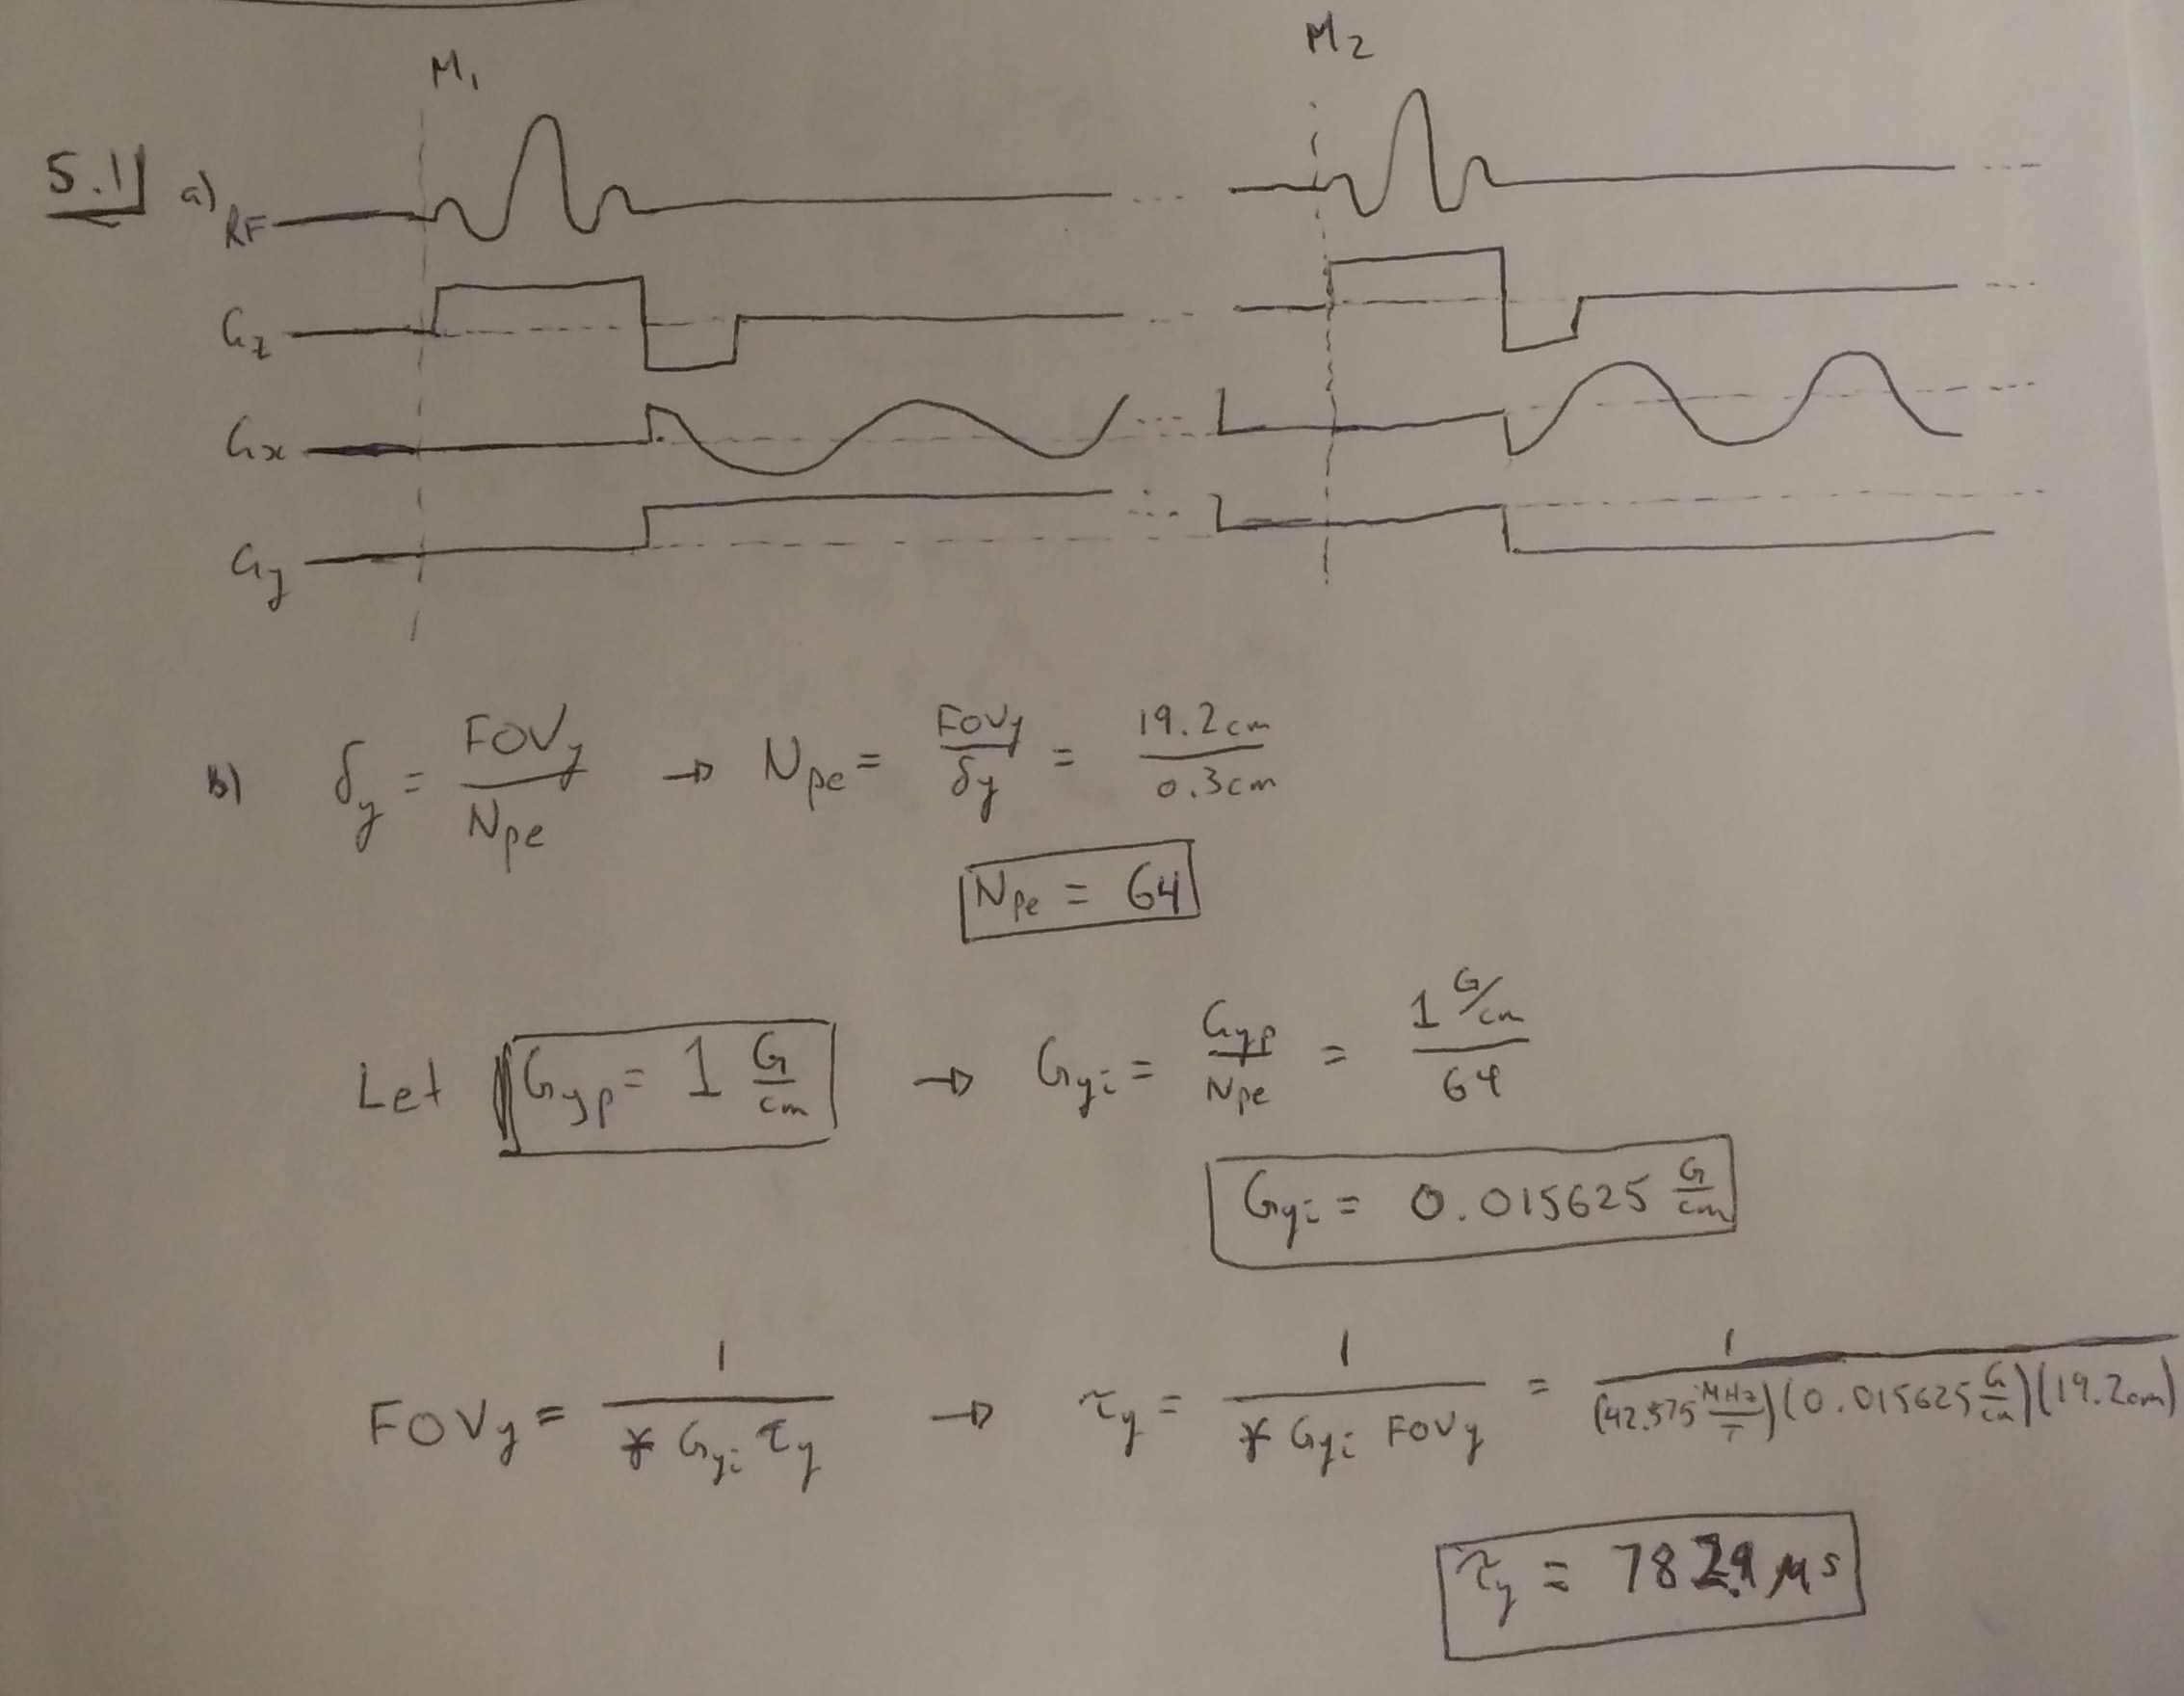 M₁ M₂
5.1 a) RF
G_z
G_x
G_y
b) δ_y = FOV_y / N_pe → N_pe = FOV_y / δ_y = 19.2cm / 0.3cm
N_pe = 64
Let G_yp = 1 G/cm → G_yi = G_yp / N_pe = 1 G/cm / 64
G_yi = 0.015625 G/cm
FOV_y = 1 / (ɣ G_yi τ_y) → τ_y = 1 / (ɣ G_yi FOV_y) = 1 / ((42.575 MHz/T)(0.015625 G/cm)(19.2cm))
τ_y = 782.9 μs